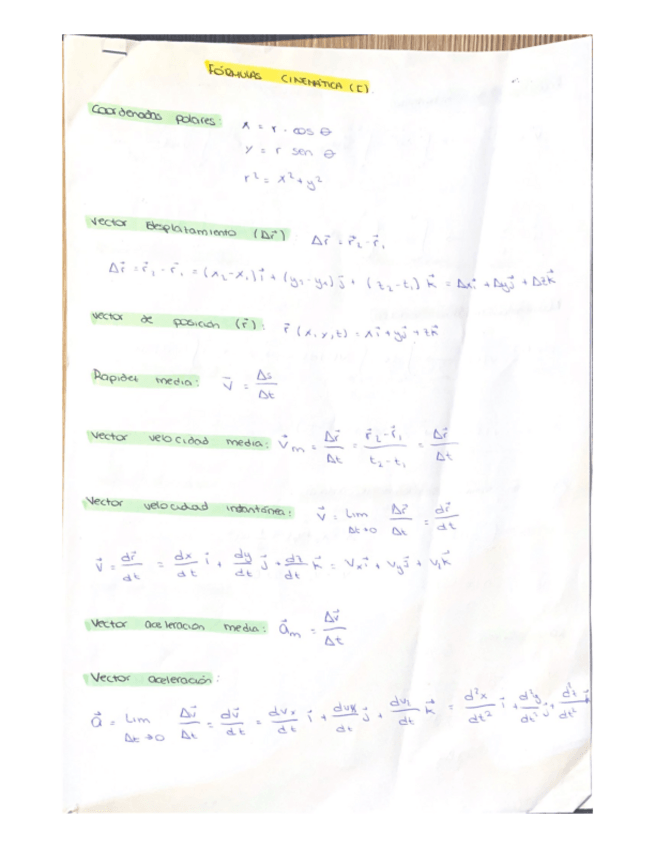 FÓRMULAS CINEMÁTICA (I)
Coordenadas polares: x = r · cos θ
y = r sen θ
r² = x² + y²
Vector desplatamiento (Δr⃗) Δr⃗ = r⃗₂ - r⃗₁
Δr⃗ = r⃗₂ - r⃗₁ = (x₂-x₁)i⃗ + (y₂-y₁)j⃗ + (z₂-z₁)k⃗ = Δxi⃗ + Δyj⃗ + Δzk⃗
Vector de posición (r⃗): r⃗ (x,y,z) = xi⃗ + yj⃗ + zk⃗
Rapidez media: v⃗ = Δs/Δt
Vector velocidad media: v⃗m = Δr⃗/Δt = r⃗₂-r⃗₁/t₂-t₁ = Δr⃗/Δt
Vector velocidad instantánea: v⃗ = lim Δt→0 Δr⃗/Δt = dr⃗/dt
v⃗ = dr⃗/dt = dx/dt i⃗ + dy/dt j⃗ + dz/dt k⃗ = vxi⃗ + vyj⃗ + vzk⃗
Vector aceleración media: a⃗m = Δv⃗/Δt
Vector aceleración:
a⃗ = lim Δt→0 Δv⃗/Δt = dv⃗/dt = dvx/dt i⃗ + dvy/dt j⃗ + dvz/dt k⃗ = d²x/dt² i⃗ + d²y/dt² j⃗ + d²z/dt² k⃗